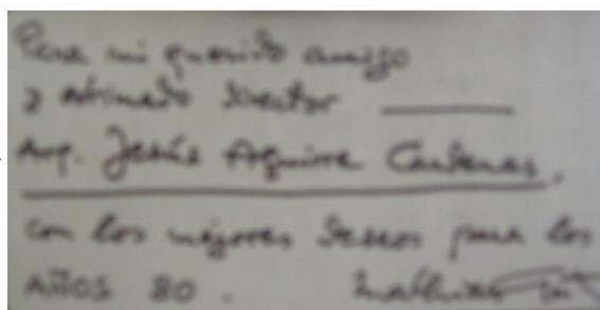 Para mi querido amigo
y estimado Director
Arq. Jesús Aguirre Cardenas,
con los mejores deseos para los
AÑOS 80. Mathias